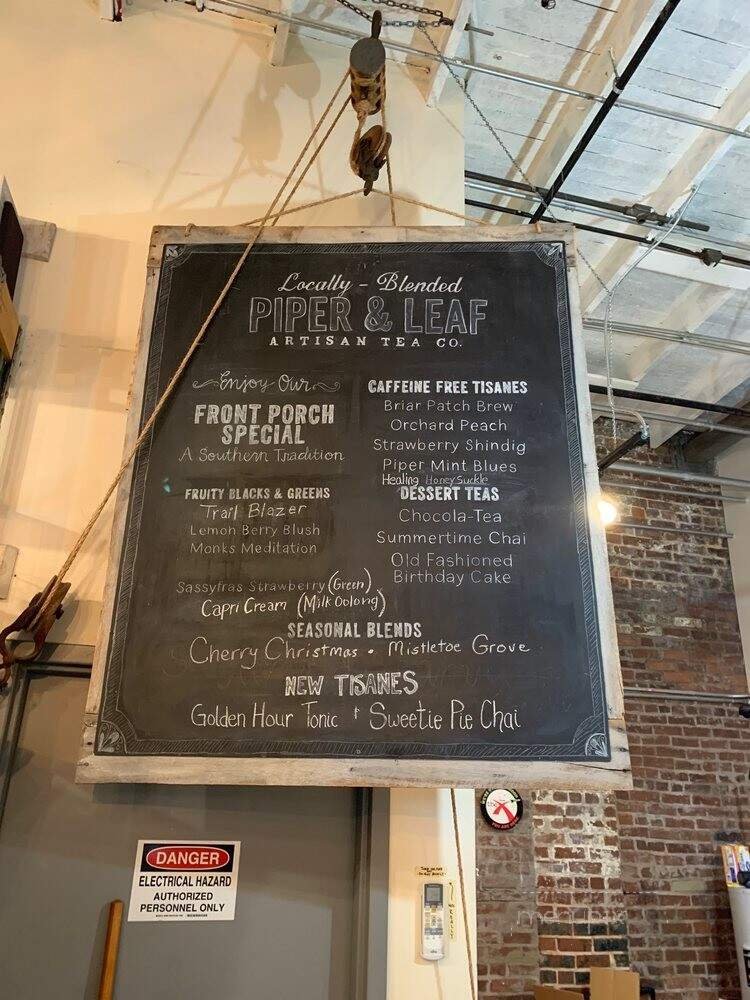 Locally - Blended
PIPER & LEAF
ARTISAN TEA CO.
Enjoy Our
FRONT PORCH
SPECIAL
A Southern Tradition
FRUITY BLACKS & GREENS
Trail Blazer
Lemon Berry Blush
Monks Meditation
Sassyfras Strawberry (Green)
Capri Cream (Milk Oolong)
CAFFEINE FREE TISANES
Briar Patch Brew
Orchard Peach
Strawberry Shindig
Piper Mint Blues
Healing Honeysuckle
DESSERT TEAS
Chocola-Tea
Summertime Chai
Old Fashioned
Birthday Cake
SEASONAL BLENDS
Cherry Christmas • Mistletoe Grove
NEW TISANES
Golden Hour Tonic + Sweetie Pie Chai
DANGER
ELECTRICAL HAZARD
AUTHORIZED
PERSONNEL ONLY